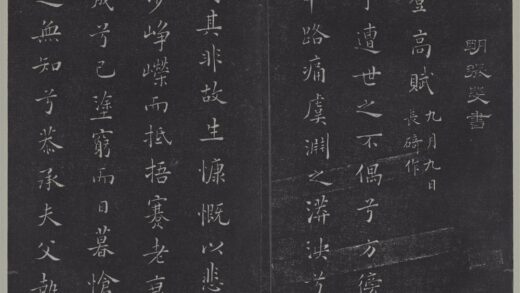 明張斐書
登高賦 九月九日
長碕作
遭世之不偶兮方徬
路痛虞淵之漭泱兮
其非故生慷慨以悲
崢嶸而抵捂蹇老
成兮已塗窮而日暮愴
無知兮恭承夫父